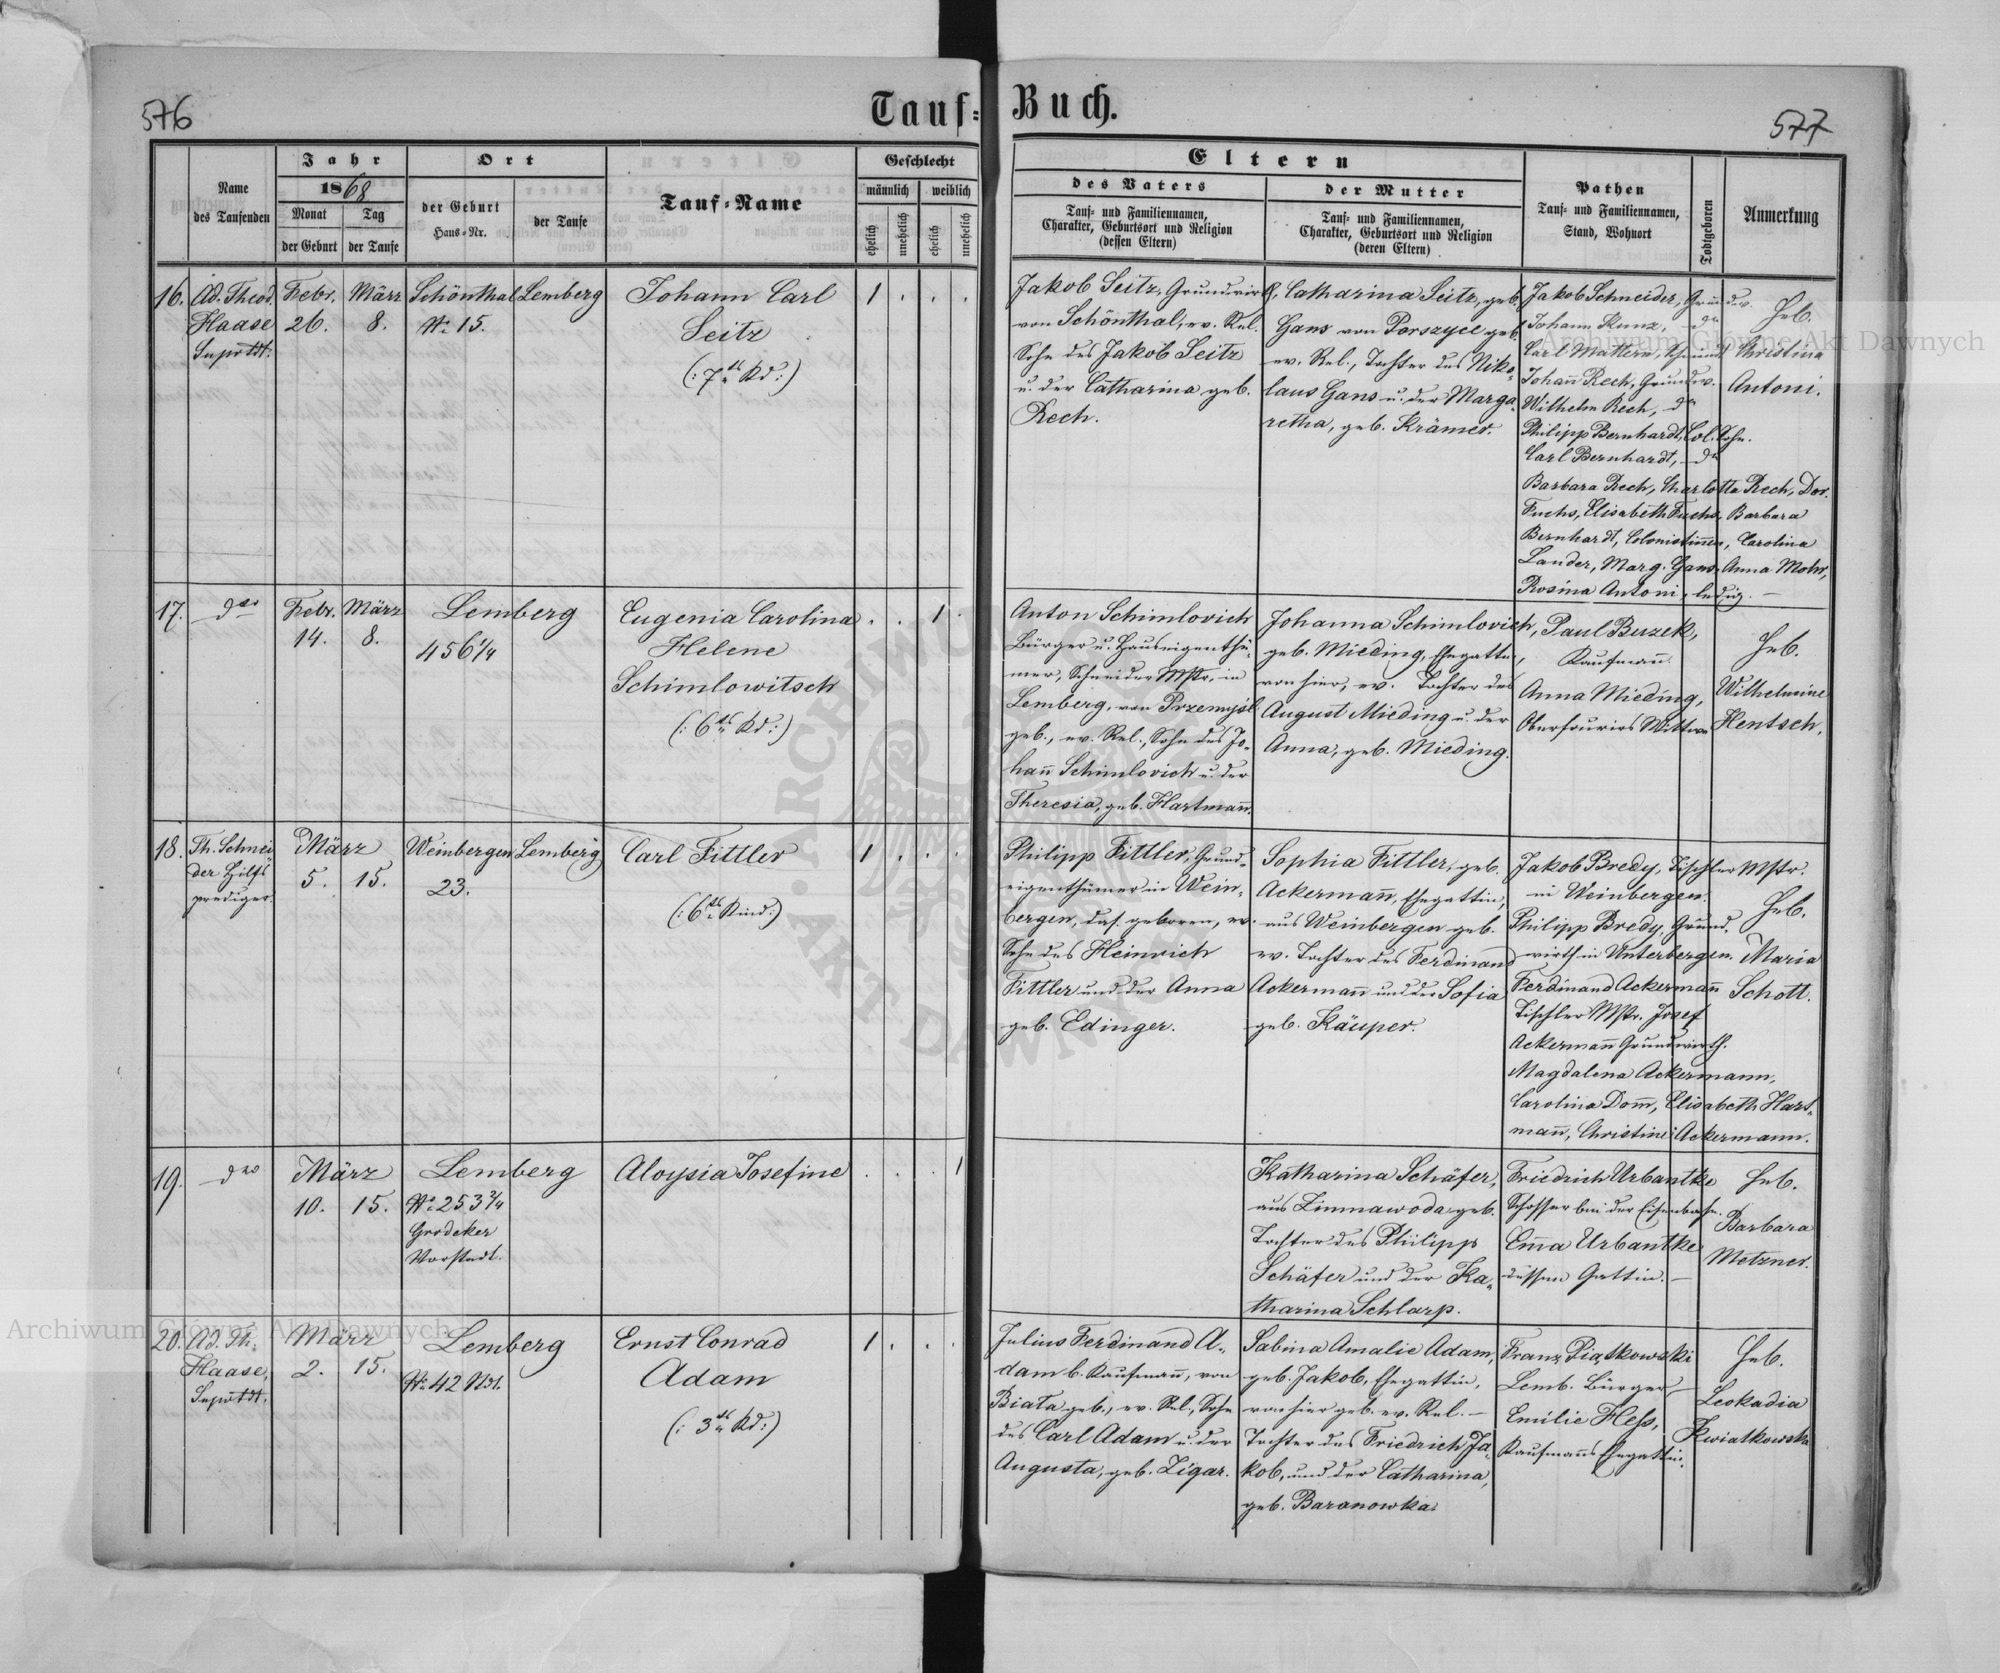 576
Tauf-Buch.
577
Name des Taufenden
Jahr
1868
Monat der Geburt
Tag der Taufe
Ort
der Geburt Haus-Nr.
der Taufe
Tauf-Name
Geschlecht
männlich
weiblich
ehelich
unehelich
ehelich
unehelich
Eltern
des Vaters
Tauf- und Familiennamen,
Charakter, Geburtsort und Religion
(dessen Eltern)
der Mutter
Tauf- und Familiennamen,
Charakter, Geburtsort und Religion
(deren Eltern)
Pathen
Tauf- und Familiennamen,
Stand, Wohnort
Todtgeboren
Anmerkung
16.
Ad. Theod.
Haase
Suprtdt.
Febr.
26.
März
8.
Schönthal
Nr. 15.
Lemberg
Johann Carl
Seitz
(: 7tes Kd :)
1
Jakob Seitz, Grundwirth,
von Schönthal, ev. Rel.
Sohn des Jakob Seitz
u. der Catharina geb.
Rech.
Catharina Seitz, geb.
Gans von Porszyce geb.
ev. Rel., Tochter des Niko-
laus Gans u. der Marga-
retha, geb. Krämer.
Jakob Schneider, Grundw.
Johann Kunz, do
Carl Mattern, Schmied
Johañ Rech, Grundw.
Wilhelm Rech, do
Philipp Bernhardt, Col. Sohn.
Carl Bernhardt, do
Barbara Rech, Charlotte Rech, Dor.
Fuchs, Elisabeth Fuchs, Barbara
Bernhardt, Colonistiñen, Carolina
Lander, Marg. Gans, Anna Mohr,
Rosina Antoni, ledig. —
Heb.
Christina
Antoni.
17.
dto
Febr.
14.
März
8.
Lemberg
456 1/4
Eugenia Carolina
Helene
Schimlowitsch
(: 6tes Kd :)
1
Anton Schimlovich
Bürger u. Hauseigenthü-
mer, Schneider Mstr. in
Lemberg, von Przemyśl
geb., ev. Rel., Sohn des Jo-
hañ Schimlovich u. der
Theresia, geb. Hartmañ.
Johanna Schimlovich,
geb. Mieding, Ehegattin,
von hier, ev. Tochter des
August Mieding u. der
Anna, geb. Mieding.
Paul Buzek,
Kaufmañ.
Anna Mieding,
Oberfouriers Wittwe
Heb.
Wilhelmine
Hentsch.
18.
Th. Schnei-
der Hilfs
prediger.
März
5. 15.
Weinbergen
23.
Lemberg
Carl Fittler
(: 6tes Kind :)
1
Philipp Fittler, Grund-
eigenthümer in Wein-
bergen, das. geboren, ev.
Sohn des Heinrich
Fittler und der Anna
geb. Edinger.
Sophia Fittler, geb.
Ackermañ, Ehegattin,
aus Weinbergen geb.
ev. Tochter des Ferdinand
Ackermañ und der Sofia
geb. Käuper.
Jakob Bredy, Tischler Mstr.
in Weinbergen.
Philipp Bredy, Grund-
wirth in Unterbergen.
Ferdinand Ackermañ
Tischler Mstr. Josef
Ackermañ Grundwirth.
Magdalena Ackermann,
Carolina Dom̃, Elisabeth Hart-
mañ, Christine Ackermann.
Heb.
Maria
Schott.
19.
dto
März
10. 15.
Lemberg
Nr. 253 2/4
Grodeker
Vorstadt.
Aloysia Josefine
1
Katharina Schäfer,
aus Zimnawoda geb.
Tochter des Philipp
Schäfer und der Ka-
tharina Schlarp.
Friedrich Urbantke
Schosser bei der Eisenbahn.
Em̃a Urbantke
dessen Gattin. —
Heb.
Barbara
Metzner.
20.
Ad. Th.
Haase,
Suprtdt.
März
2. 15.
Lemberg
Nr. 42 Vdt.
Ernst Conrad
Adam
(: 3tes Kd :)
1
Julius Ferdinand A-
dam b. Kaufmañ, von
Biała geb., ev. Rel., Sohn
des Carl Adam u. der
Augusta, geb. Zigar.
Sabina Amalie Adam,
geb. Jakob, Ehegattin,
von hier geb. ev. Rel. —
Tochter des Friedrich Ja-
kob, und der Catharina,
geb. Baranowka.
Franz Piątkowski
Lemb. Bürger, —
Emilie Heß,
Kaufmanns Ehegattin.
Heb.
Leokadia
Kwiatkowska
Archiwum Główne Akt Dawnych
Archiwum Główne Akt Dawnych